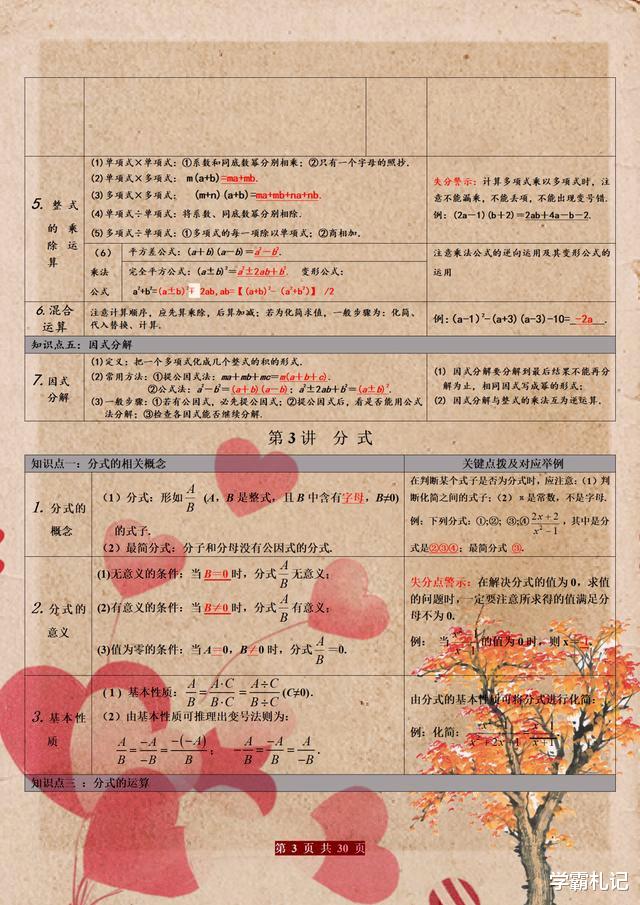 5. 整式的乘除运算
(1)单项式×单项式：①系数和同底数幂分别相乘；②只有一个字母的照抄.
(2)单项式×多项式： m(a+b)=ma+mb.
(3)多项式×多项式： (m+n)(a+b)=ma+mb+na+nb.
(4)单项式÷单项式：将系数、同底数幂分别相除.
(5)多项式÷单项式：①多项式的每一项除以单项式；②商相加.
失分警示：计算多项式乘以多项式时，注
意不能漏乘，不能丢项，不能出现变号错.
例：(2a－1)(b＋2)＝2ab＋4a－b－2.
（6）
乘法
公式
平方差公式：(a＋b)(a－b)＝a²－b².
完全平方公式：(a±b)²＝a²±2ab＋b². 变形公式：
a²+b²=(a±b)²∓2ab,ab=【(a+b)²-(a²+b²)】 /2
注意乘法公式的逆向运用及其变形公式的
运用
6.混合
运算
注意计算顺序，应先算乘除，后算加减；若为化简求值，一般步骤为：化简、
代入替换、计算.
例:(a-1)²-(a+3)(a-3)-10=_-2a__.
知识点五：因式分解
7.因式
分解
(1)定义：把一个多项式化成几个整式的积的形式.
(2)常用方法：①提公因式法：ma＋mb＋mc＝m(a＋b＋c).
②公式法：a²－b²＝(a＋b)(a－b)；a²±2ab＋b²＝(a±b)².
(3)一般步骤：①若有公因式，必先提公因式；②提公因式后，看是否能用公式
法分解；③检查各因式能否继续分解.
(1) 因式分解要分解到最后结果不能再分
解为止，相同因式写成幂的形式；
(2) 因式分解与整式的乘法互为逆运算.
第 3 讲 分 式
知识点一：分式的相关概念
关键点拨及对应举例
1. 分式的
概念
（1）分式：形如A/B (A，B是整式，且B中含有字母，B≠0)
的式子.
（2）最简分式：分子和分母没有公因式的分式.
在判断某个式子是否为分式时，应注意：（1）判
断化简之间的式子；（2）π是常数，不是字母.
例：下列分式：①;②; ③;④(2x+2)/(x²−1)，其中是分
式是②③④；最简分式 ③.
2. 分式的
意义
(1)无意义的条件：当B＝0时，分式A/B无意义；
(2)有意义的条件：当B≠0时，分式A/B有意义；
(3)值为零的条件：当A＝0，B≠0时，分式A/B=0.
失分点警示：在解决分式的值为0，求值
的问题时，一定要注意所求得的值满足分
母不为0.
例： 当 的值为0时，则x＝
3. 基本性
质
（1）基本性质：A/B=A·C/B·C=A÷C/B÷C(C≠0).
（2）由基本性质可推理出变号法则为：
A/B=−A/−B=−(−A)/B； −A/B=−A/B=A/−B.
由分式的基本性质可将分式进行化简：
例：化简：
知识点三 ：分式的运算
第 3 页 共 30 页
学霸札记